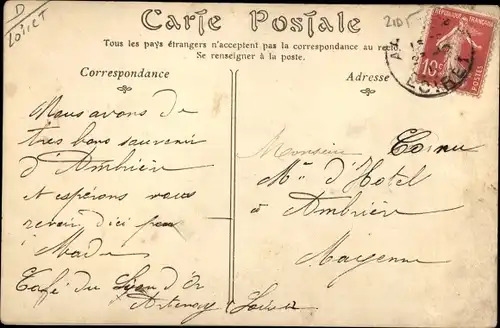 D
Loiret
Carte Postale
Tous les pays étrangers n'acceptent pas la correspondance au recto
Se renseigner à la poste.
Correspondance
Adresse
RÉPUBLIQUE FRANÇAISE
10c
POSTES
LOIRET
Nous avons de
tres bons souvenir
d'Ambrière
et espérons vous
revoir d'ici peu
Made
Café du Lyon d'Or
Artenay Loiret
Monsieur
Md d'Hotel
à Ambrière
Mayenne